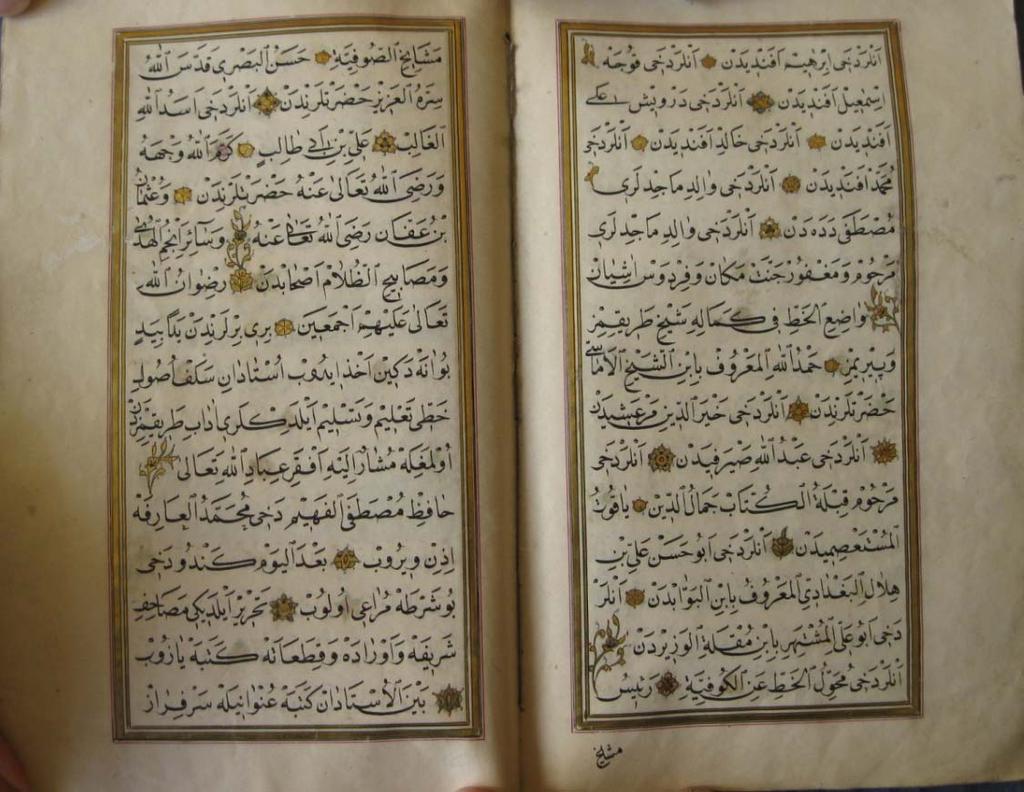 آنلر دخی ابرهیم افندیدن آنلر دخی قوجه
اسمعیل افندیدن آنلر دخی درویش علی
افندیدن آنلر دخی خالد افندیدن آنلر دخی
محمد افندیدن آنلر دخی والد ماجدلری
مصطفی دده دن آنلر دخی والد ماجدلری
مرحوم ومغفور جنت مکان وفردوس اشیان
واضع الخط فی کماله شیخ طریقمز
وپیریمز حمد الله المعروف بابن الشیخ الاماسی
حضرتلرندن آنلر دخی خیر الدین مرعشیدن
آنلر دخی عبد الله صیرفیدن آنلر دخی
مرحوم قبلة الکتاب جمال الدین یاقوت
المستعصمیدن آنلر دخی ابو حسن علی بن
هلال البغدادی المعروف بابن البوابدن آنلر
دخی ابو علی المشتهر بابن مقلة الوزیردن
آنلر دخی محول الخط عن الکوفیة رئیس
مشایخ
مشایخ الصوفیة حسن البصری قدس الله
سره العزیز حضرتلرندن آنلر دخی اسد الله
الغالب علی بن ابی طالب کرم الله وجهه
ورضی الله تعالی عنه حضرتلرندن وعثمان
بن عفان رضی الله تعالی عنه وسائر انجم الهدی
ومصابیح الظلام اصحابدن رضوان الله
تعالی علیهم اجمعین بری برلرندن یدا بید
بو آنه دکین اخذ ایدوب استادان سلف اصولی
خطی تعلیم وتسلیم ایلدکلری اداب طریقمزدن
اولمغله مشار الیه افقر عباد الله تعالی
حافظ مصطفی الفهیم دخی محمد العارفه
اذن ویروب بعد الیوم کندو دخی
بو شرطه مراعی اولوب تحریر ایلدیکی مصاحف
شریفه واوراده وقطعاته کتبه یازوب
بین الاستادان کتبه عنوانیله سرفراز